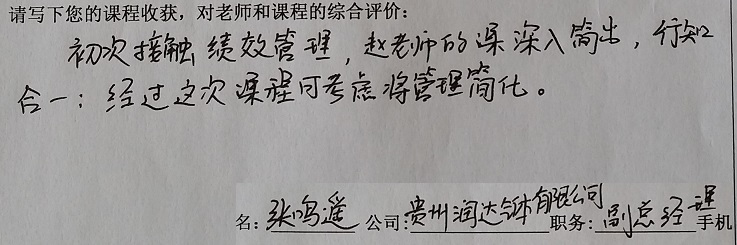 请写下您的课程收获，对老师和课程的综合评价：
初次接触绩效管理，赵老师的课深入简出，行知
合一；经过这次课程可考虑将管理简化。
名：张鸣遥 公司：贵州润达气体有限公司 职务：副总经理 手机